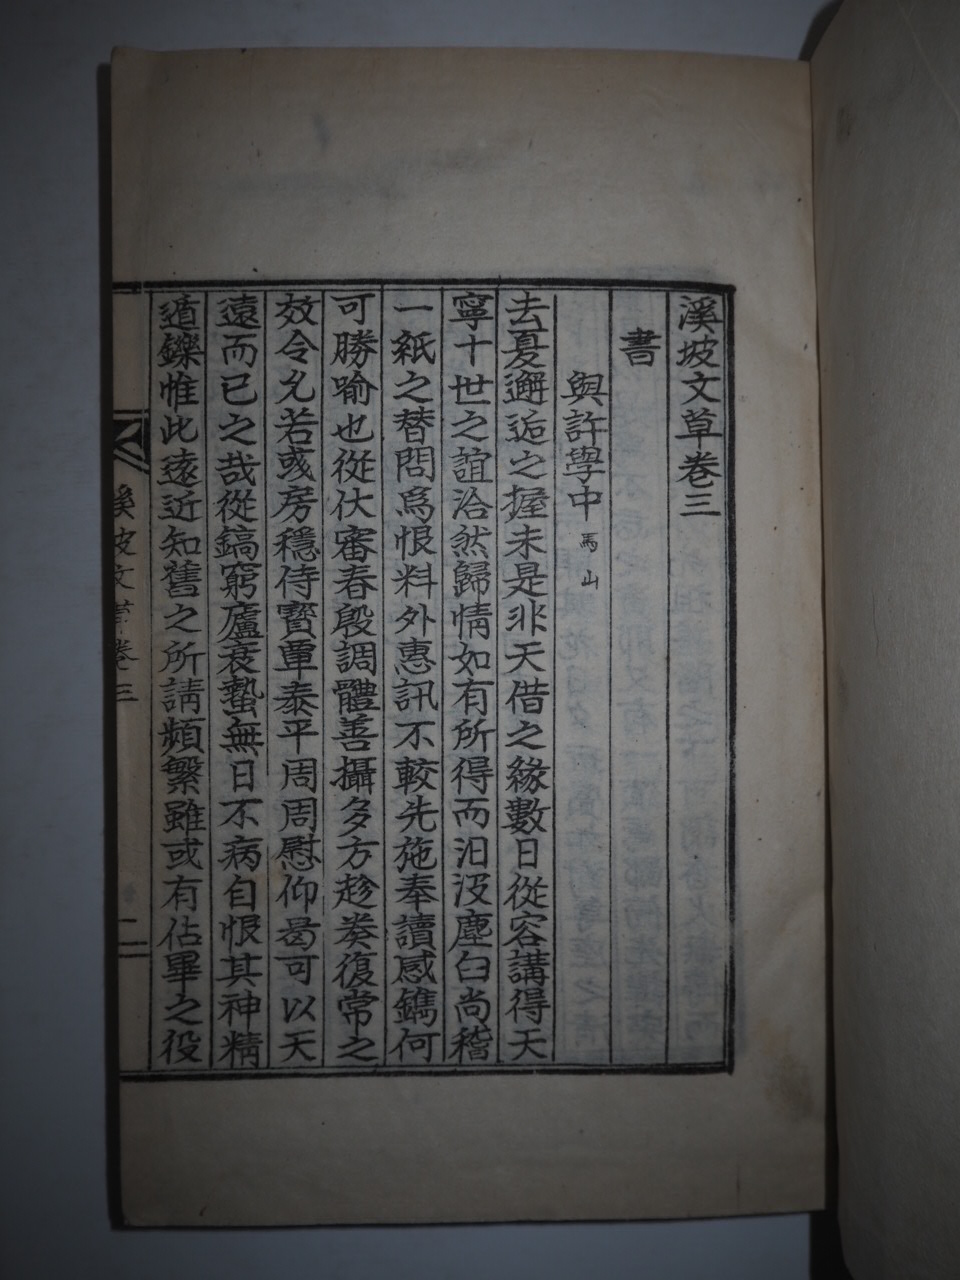 溪坡文草卷三
書
與許學中 馬山
去夏邂逅之握未是非天借之緣數日從容講得天
寧十世之誼洽然歸情如有所得而汨汲塵臼尚稽
一紙之替問爲恨料外惠訊不較先施奉讀感鐫何
可勝喩也從伏審春殷調體善攝多方趁羙復常之
效令允若彧房穩侍寶覃泰平周周慰仰曷可以天
遠而已之哉從鎬窮廬衰蟄無日不病自恨其神精
遁鑠惟此遠近知舊之所請頻繁雖或有佔畢之役
溪坡文草卷三